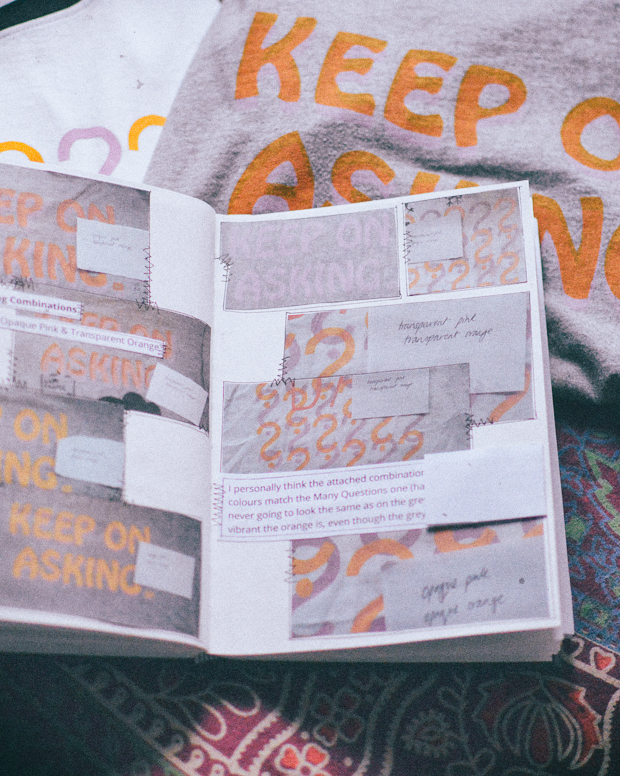 KEEP ON
ASKING
EP ON
KING.
g Combinations
Opaque Pink & Transparent Orange
EP ON
ASKING
T ON
NG.
KEEP ON
ASKING.
KEEP ON
ASKING.
transparent pink
transparent orange
I personally think the attached combination
colours match the Many Questions one (ha
never going to look the same as on the gre
vibrant the orange is, even though the grey
opaque pink
opaque orange